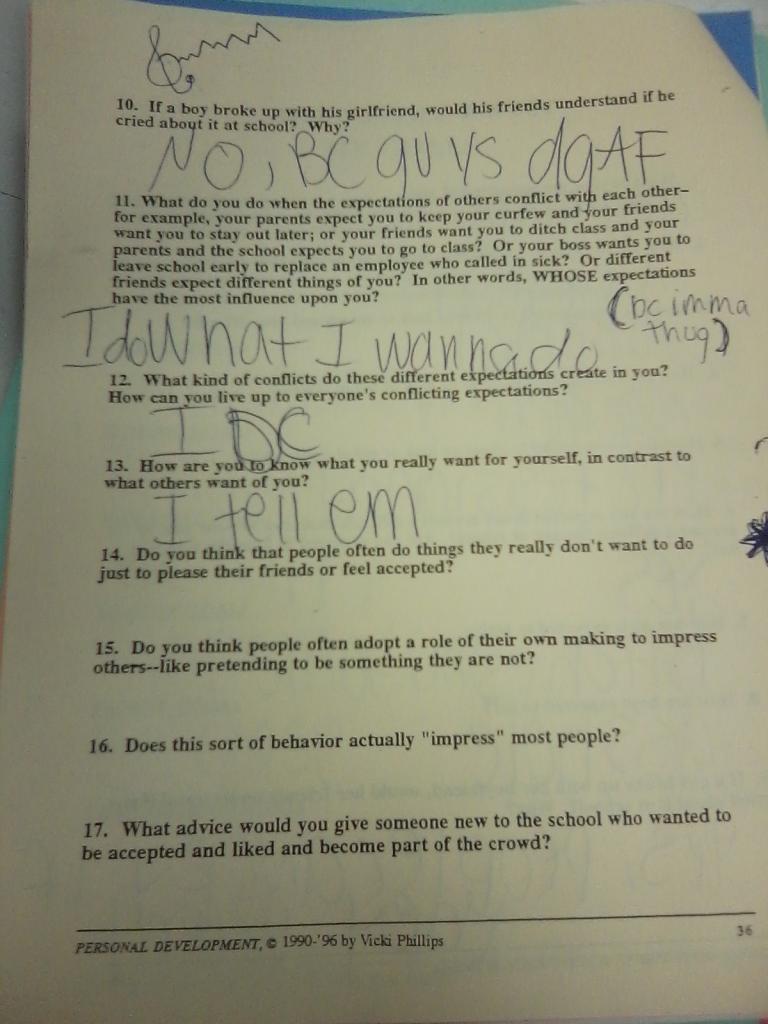 10. If a boy broke up with his girlfriend, would his friends understand if he
cried about it at school? Why?
NO, BC guys dgAF
11. What do you do when the expectations of others conflict with each other--
for example, your parents expect you to keep your curfew and your friends
want you to stay out later; or your friends want you to ditch class and your
parents and the school expects you to go to class? Or your boss wants you to
leave school early to replace an employee who called in sick? Or different
friends expect different things of you? In other words, WHOSE expectations
have the most influence upon you?
(bc imma
thug)
I do What I wanna do
12. What kind of conflicts do these different expectations create in you?
How can you live up to everyone's conflicting expectations?
I DC
13. How are you to know what you really want for yourself, in contrast to
what others want of you?
I tell em
14. Do you think that people often do things they really don't want to do
just to please their friends or feel accepted?
15. Do you think people often adopt a role of their own making to impress
others--like pretending to be something they are not?
16. Does this sort of behavior actually "impress" most people?
17. What advice would you give someone new to the school who wanted to
be accepted and liked and become part of the crowd?
PERSONAL DEVELOPMENT, © 1990-'96 by Vicki Phillips
36